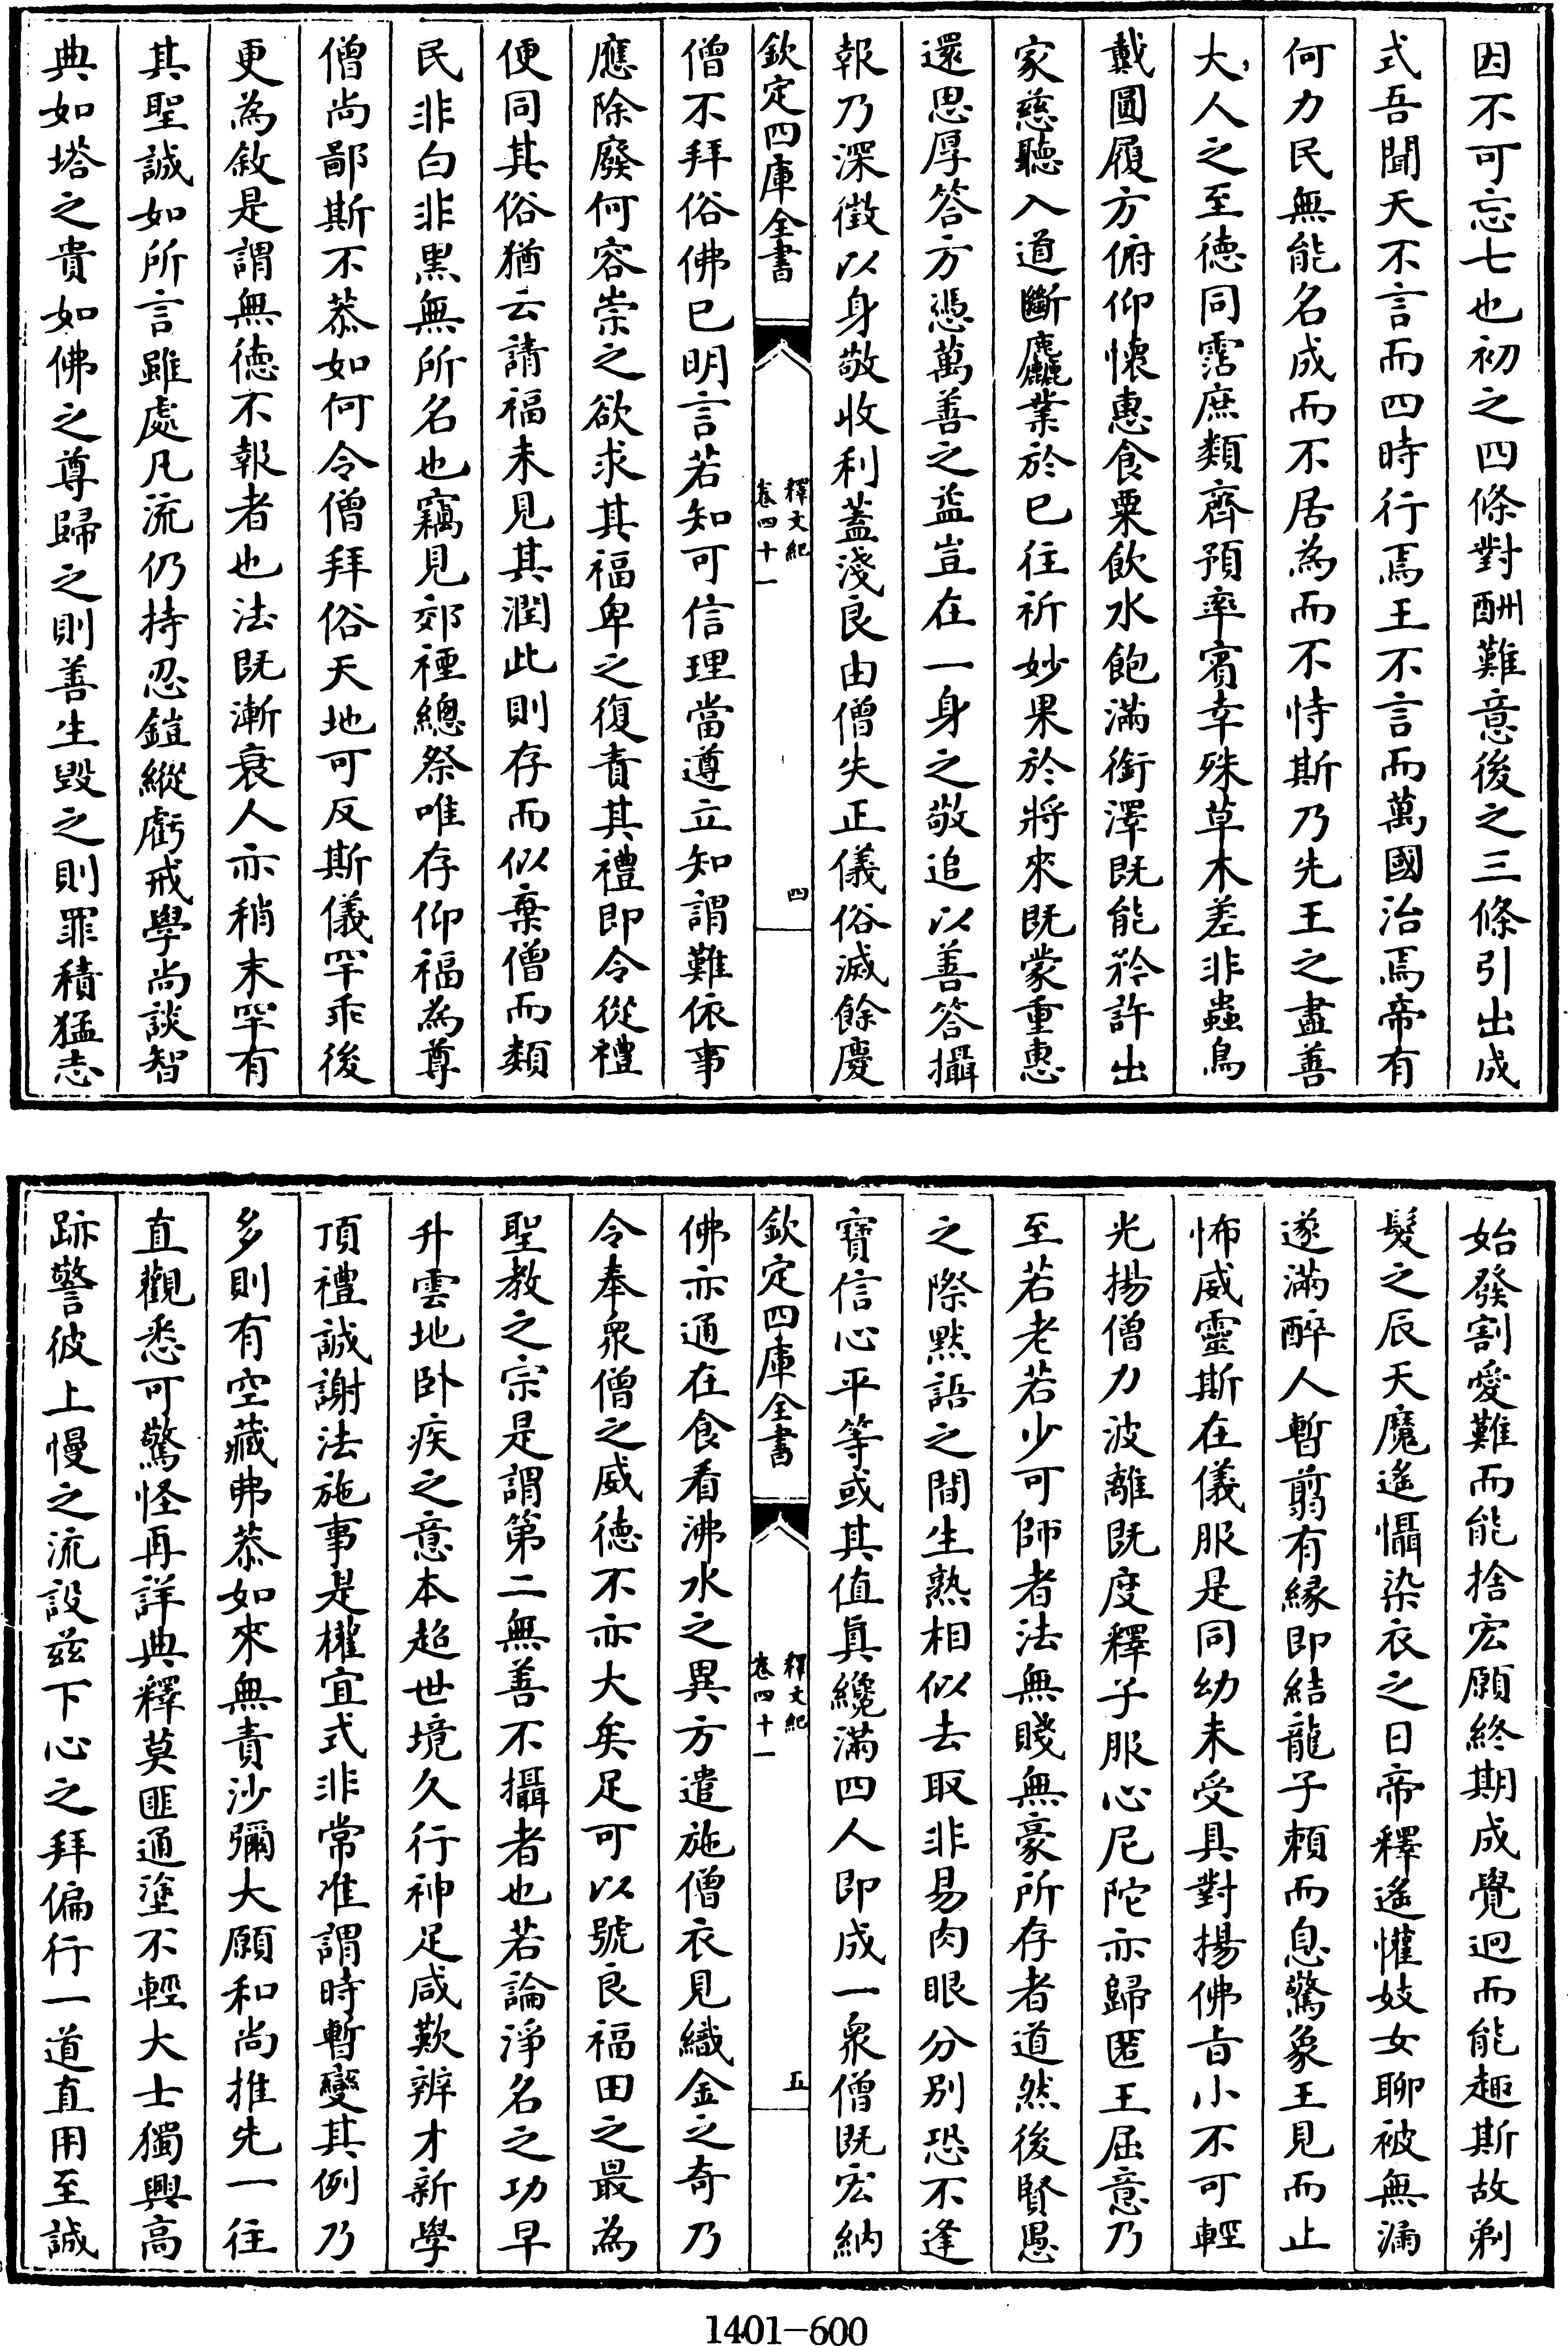 因不可忘七也初之四條對酬難意後之三條引出成
式吾聞天不言而四時行焉王不言而萬國治焉帝有
何力民無能名成而不居為而不恃斯乃先王之盡善
大人之至德同霑庶類齊預率賓幸殊草木差非蟲鳥
戴圓履方俯仰懷惠食粟飲水飽滿銜澤既能矜許出
家慈聽入道斷麤業於已往祈妙果於將來既蒙重惠
還思厚答方憑萬善之益豈在一身之敬追以善答攝
報乃深徵以身敬收利蓋淺良由僧失正儀俗滅餘慶
欽定四庫全書
釋文紀
卷四十一
四
僧不拜俗佛已明言若知可信理當遵立知謂難依事
應除廢何容崇之欲求其福卑之復責其禮即令從禮
便同其俗猶云請福未見其潤此則存而似棄僧而類
民非白非黑無所名也竊見郊禋總祭唯存仰福為尊
僧尚鄙斯不恭如何令僧拜俗天地可反斯儀罕乖後
更為敘是謂無德不報者也法既漸衰人亦稍末罕有
其聖誠如所言雖處凡流仍持忍鎧縱虧戒學尚談智
典如塔之貴如佛之尊歸之則善生毀之則罪積猛志
始發割愛難而能捨宏願終期成覺迥而能趣斯故剃
髮之辰天魔遙懾染衣之日帝釋遙懽妓女聊被無漏
遂滿醉人暫翦有緣即結龍子賴而息驚象王見而止
怖威靈斯在儀服是同幼未受具對揚佛旨小不可輕
光揚僧力波離既度釋子服心尼陀亦歸匿王屈意乃
至若老若少可師者法無賤無豪所存者道然後賢愚
之際默語之間生熟相似去取非易肉眼分別恐不逢
寶信心平等或其值真纔滿四人即成一衆僧既宏納
欽定四庫全書
釋文紀
卷四十一
五
佛亦通在食看沸水之異方遣施僧衣見織金之奇乃
令奉衆僧之威德不亦大矣足可以號良福田之最為
聖教之宗是謂第二無善不攝者也若論淨名之功早
升雲地臥疾之意本超世境久行神足咸歎辨才新學
頂禮誠謝法施事是權宜式非常准謂時暫變其例乃
多則有空藏弗恭如來無責沙彌大願和尚推先一往
直觀悉可驚怪再詳典釋莫匪通塗不輕大士獨興高
跡警彼上慢之流設茲下心之拜偏行一道直用至誠
1401-600